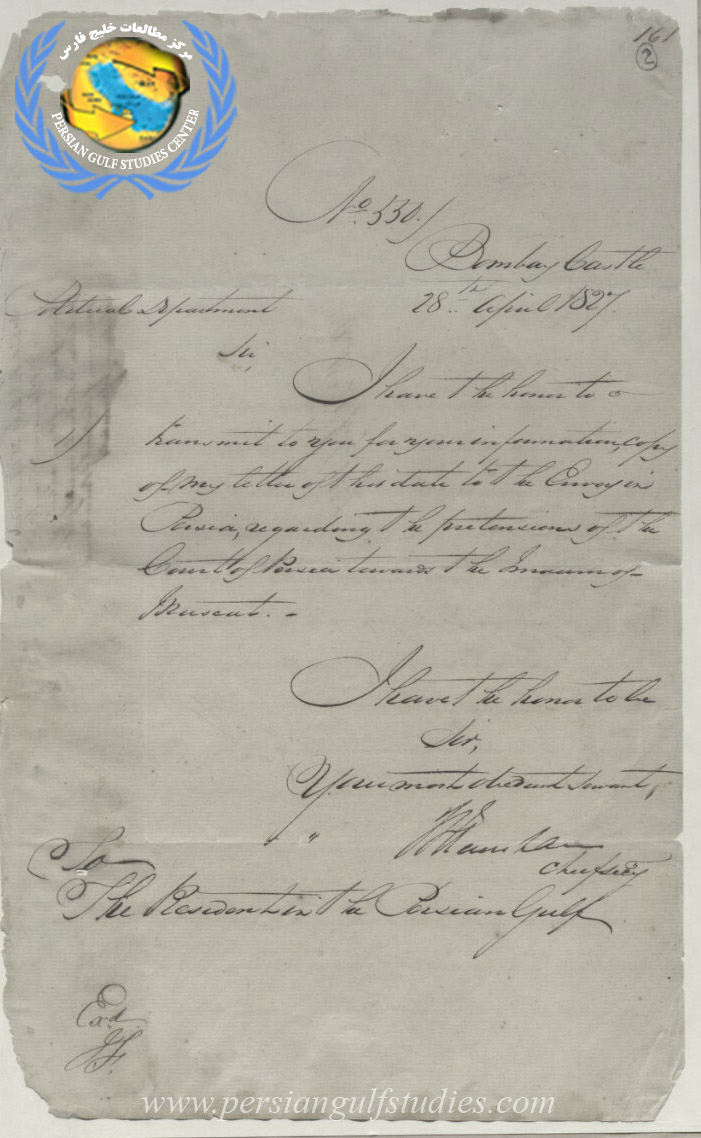 مرکز مطالعات خلیج فارس
PERSIAN GULF STUDIES CENTER
161
2
No. 550./
Bombay Castle
Political Department
28th April 1827.
Sir,
I have the honor to
1/)
transmit to you for your information, copy
of my letter of this date to the Envoy in
Persia, regarding the pretensions of the
Court of Persia towards the Imaum of
Muscat. -
I have the honor to be
Sir,
Your most obedient servant,
Chief Secy
To
The Resident in the Persian Gulf
Exd
www.persiangulfstudies.com